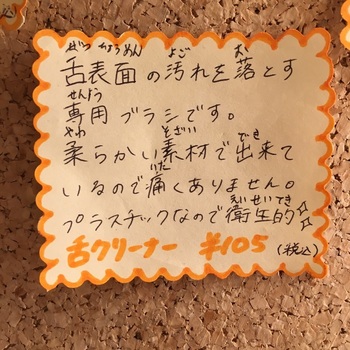 ぜつひょうめん よご お
舌表面の汚れを落とす
せんよう
専用ブラシです。
やわ そざい でき
柔らかい素材で出来て
いた
いるので痛くありません。
えいせいてき
プラスチックなので衛生的☆☆
舌クリーナー ¥105 (税込)